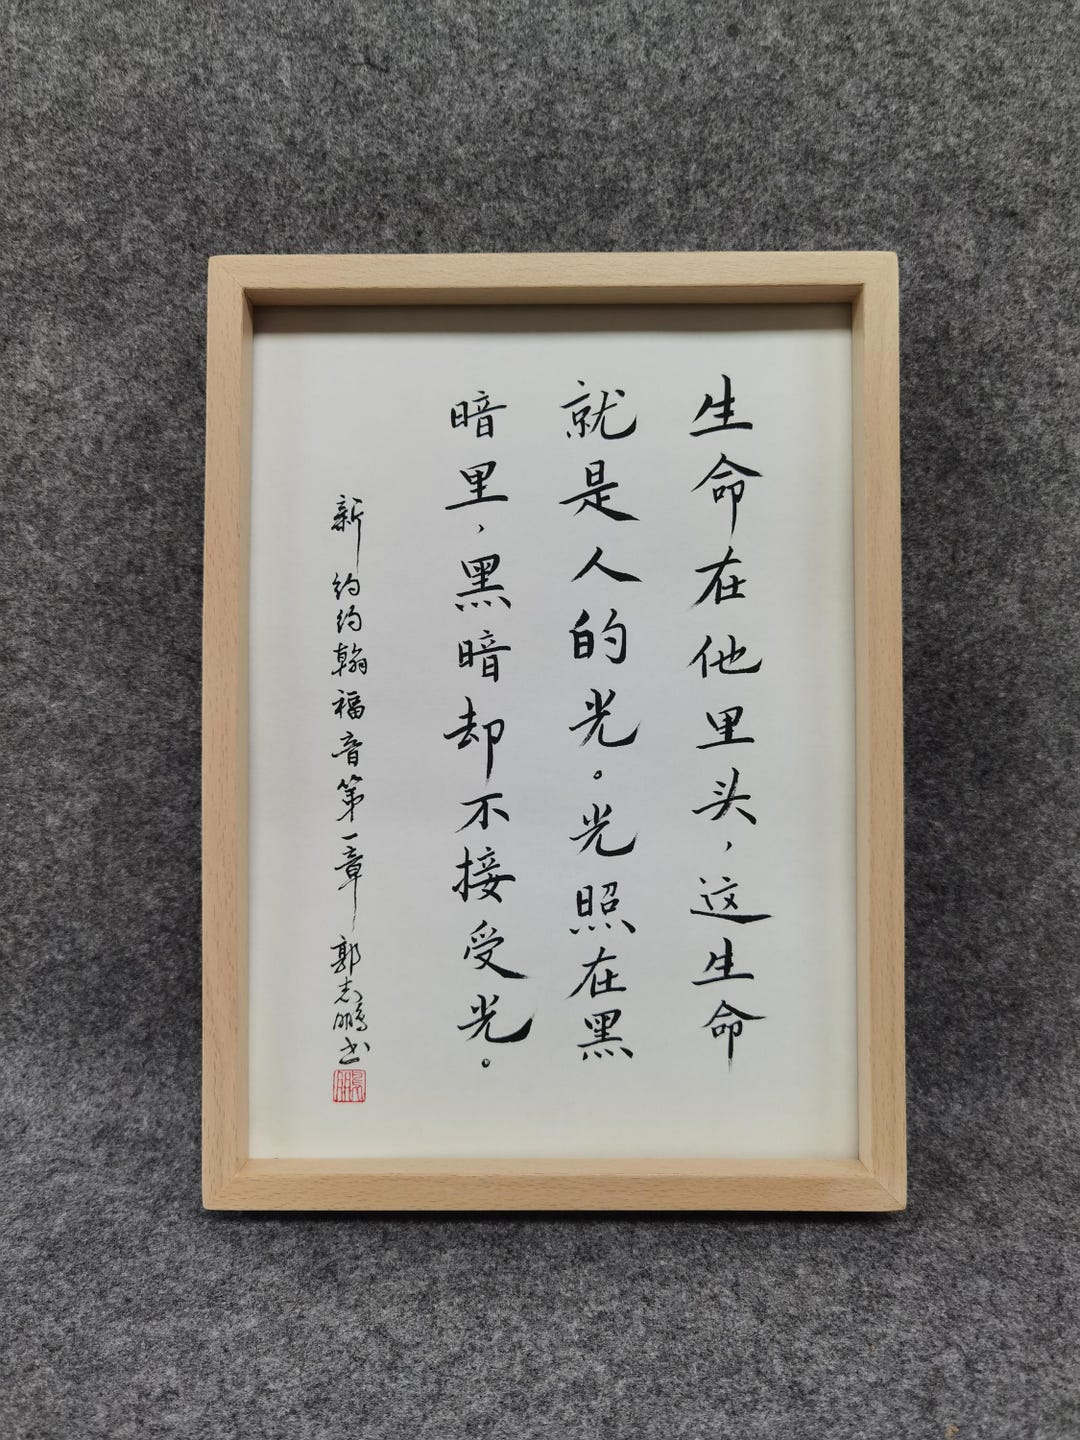 生命在他里头，这生命
就是人的光。光照在黑
暗里，黑暗却不接受光。
新约约翰福音第一章 郭志鹏书